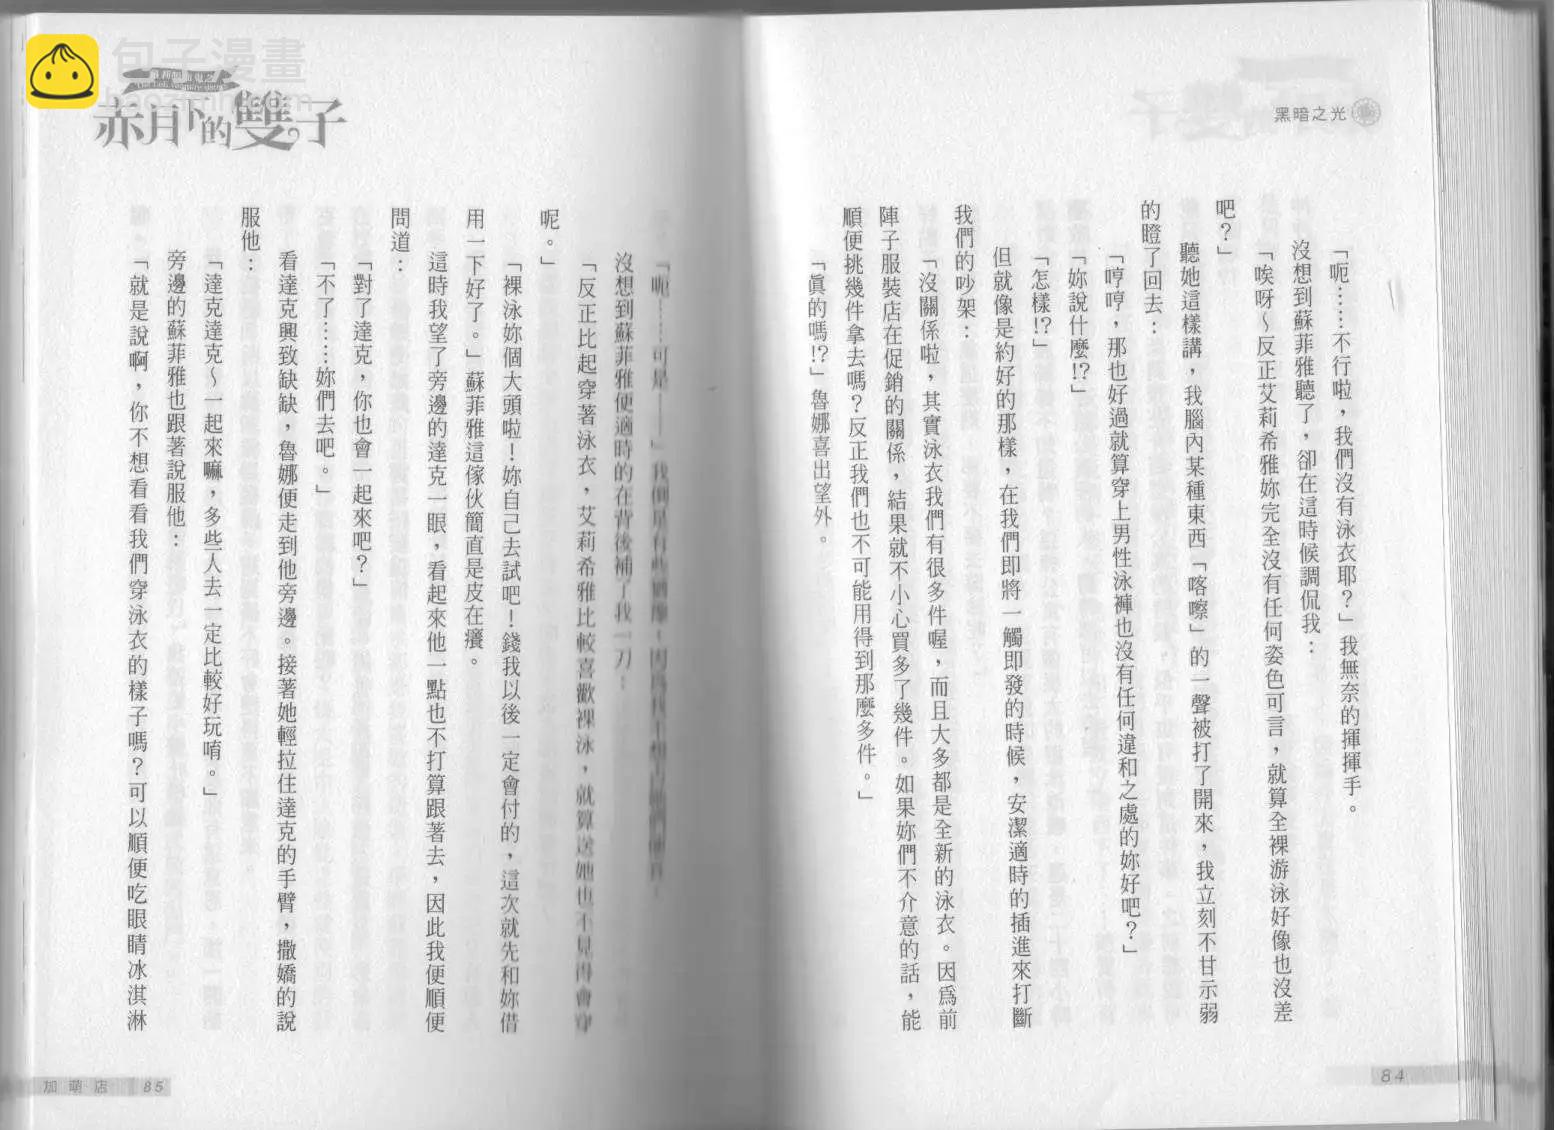 包子漫畫
baozimh.com
黑暗之光
「呃……不行啦,我們沒有泳衣耶?」我無奈的揮揮手。
沒想到蘇菲雅聽了,卻在這時候調侃我:
「唉呀～反正艾莉希雅妳完全沒有任何姿色可言,就算全裸游泳好像也沒差
吧?」
聽她這樣講,我腦內某種東西「喀嚓」的一聲被打了開來,我立刻不甘示弱
的瞪了回去:
「哼哼,那也好過就算穿上男性泳褲也沒有任何違和之處的妳好吧?」
「妳說什麼!?」
「怎樣!?」
但就像是約好的那樣,在我們即將一觸即發的時候,安潔適時的插進來打斷
我們的吵架:
「沒關係啦,其實泳衣我們有很多件喔,而且大多都是全新的泳衣。因爲前
陣子服裝店在促銷的關係,結果就不小心買多了幾件。如果妳們不介意的話,能
順便挑幾件拿去嗎?反正我們也不可能用得到那麼多件。」
「眞的嗎!?」魯娜喜出望外。
84
赤月下的雙子
「呃……可是——」我倒是有些
沒想到蘇菲雅便適時的在背後補了我一刀:
「反正比起穿著泳衣,艾莉希雅比較喜歡裸泳,就算送她也不見得會穿
呢。」
「裸泳妳個大頭啦!妳自己去試吧!錢我以後一定會付的,這次就先和妳借
用一下好了。」蘇菲雅這傢伙簡直是皮在癢。
這時我望了旁邊的達克一眼,看起來他一點也不打算跟著去,因此我便順便
問道:
「對了達克,你也會一起來吧?」
「不了……妳們去吧。」
看達克興致缺缺,魯娜便走到他旁邊。接著她輕拉住達克的手臂,撒嬌的說
服他:
「達克達克～一起來嘛,多些人去一定比較好玩唷。」
旁邊的蘇菲雅也跟著說服他:
「就是說啊,你不想看看我們穿泳衣的樣子嗎?可以順便吃眼睛冰淇淋
加萌店 85